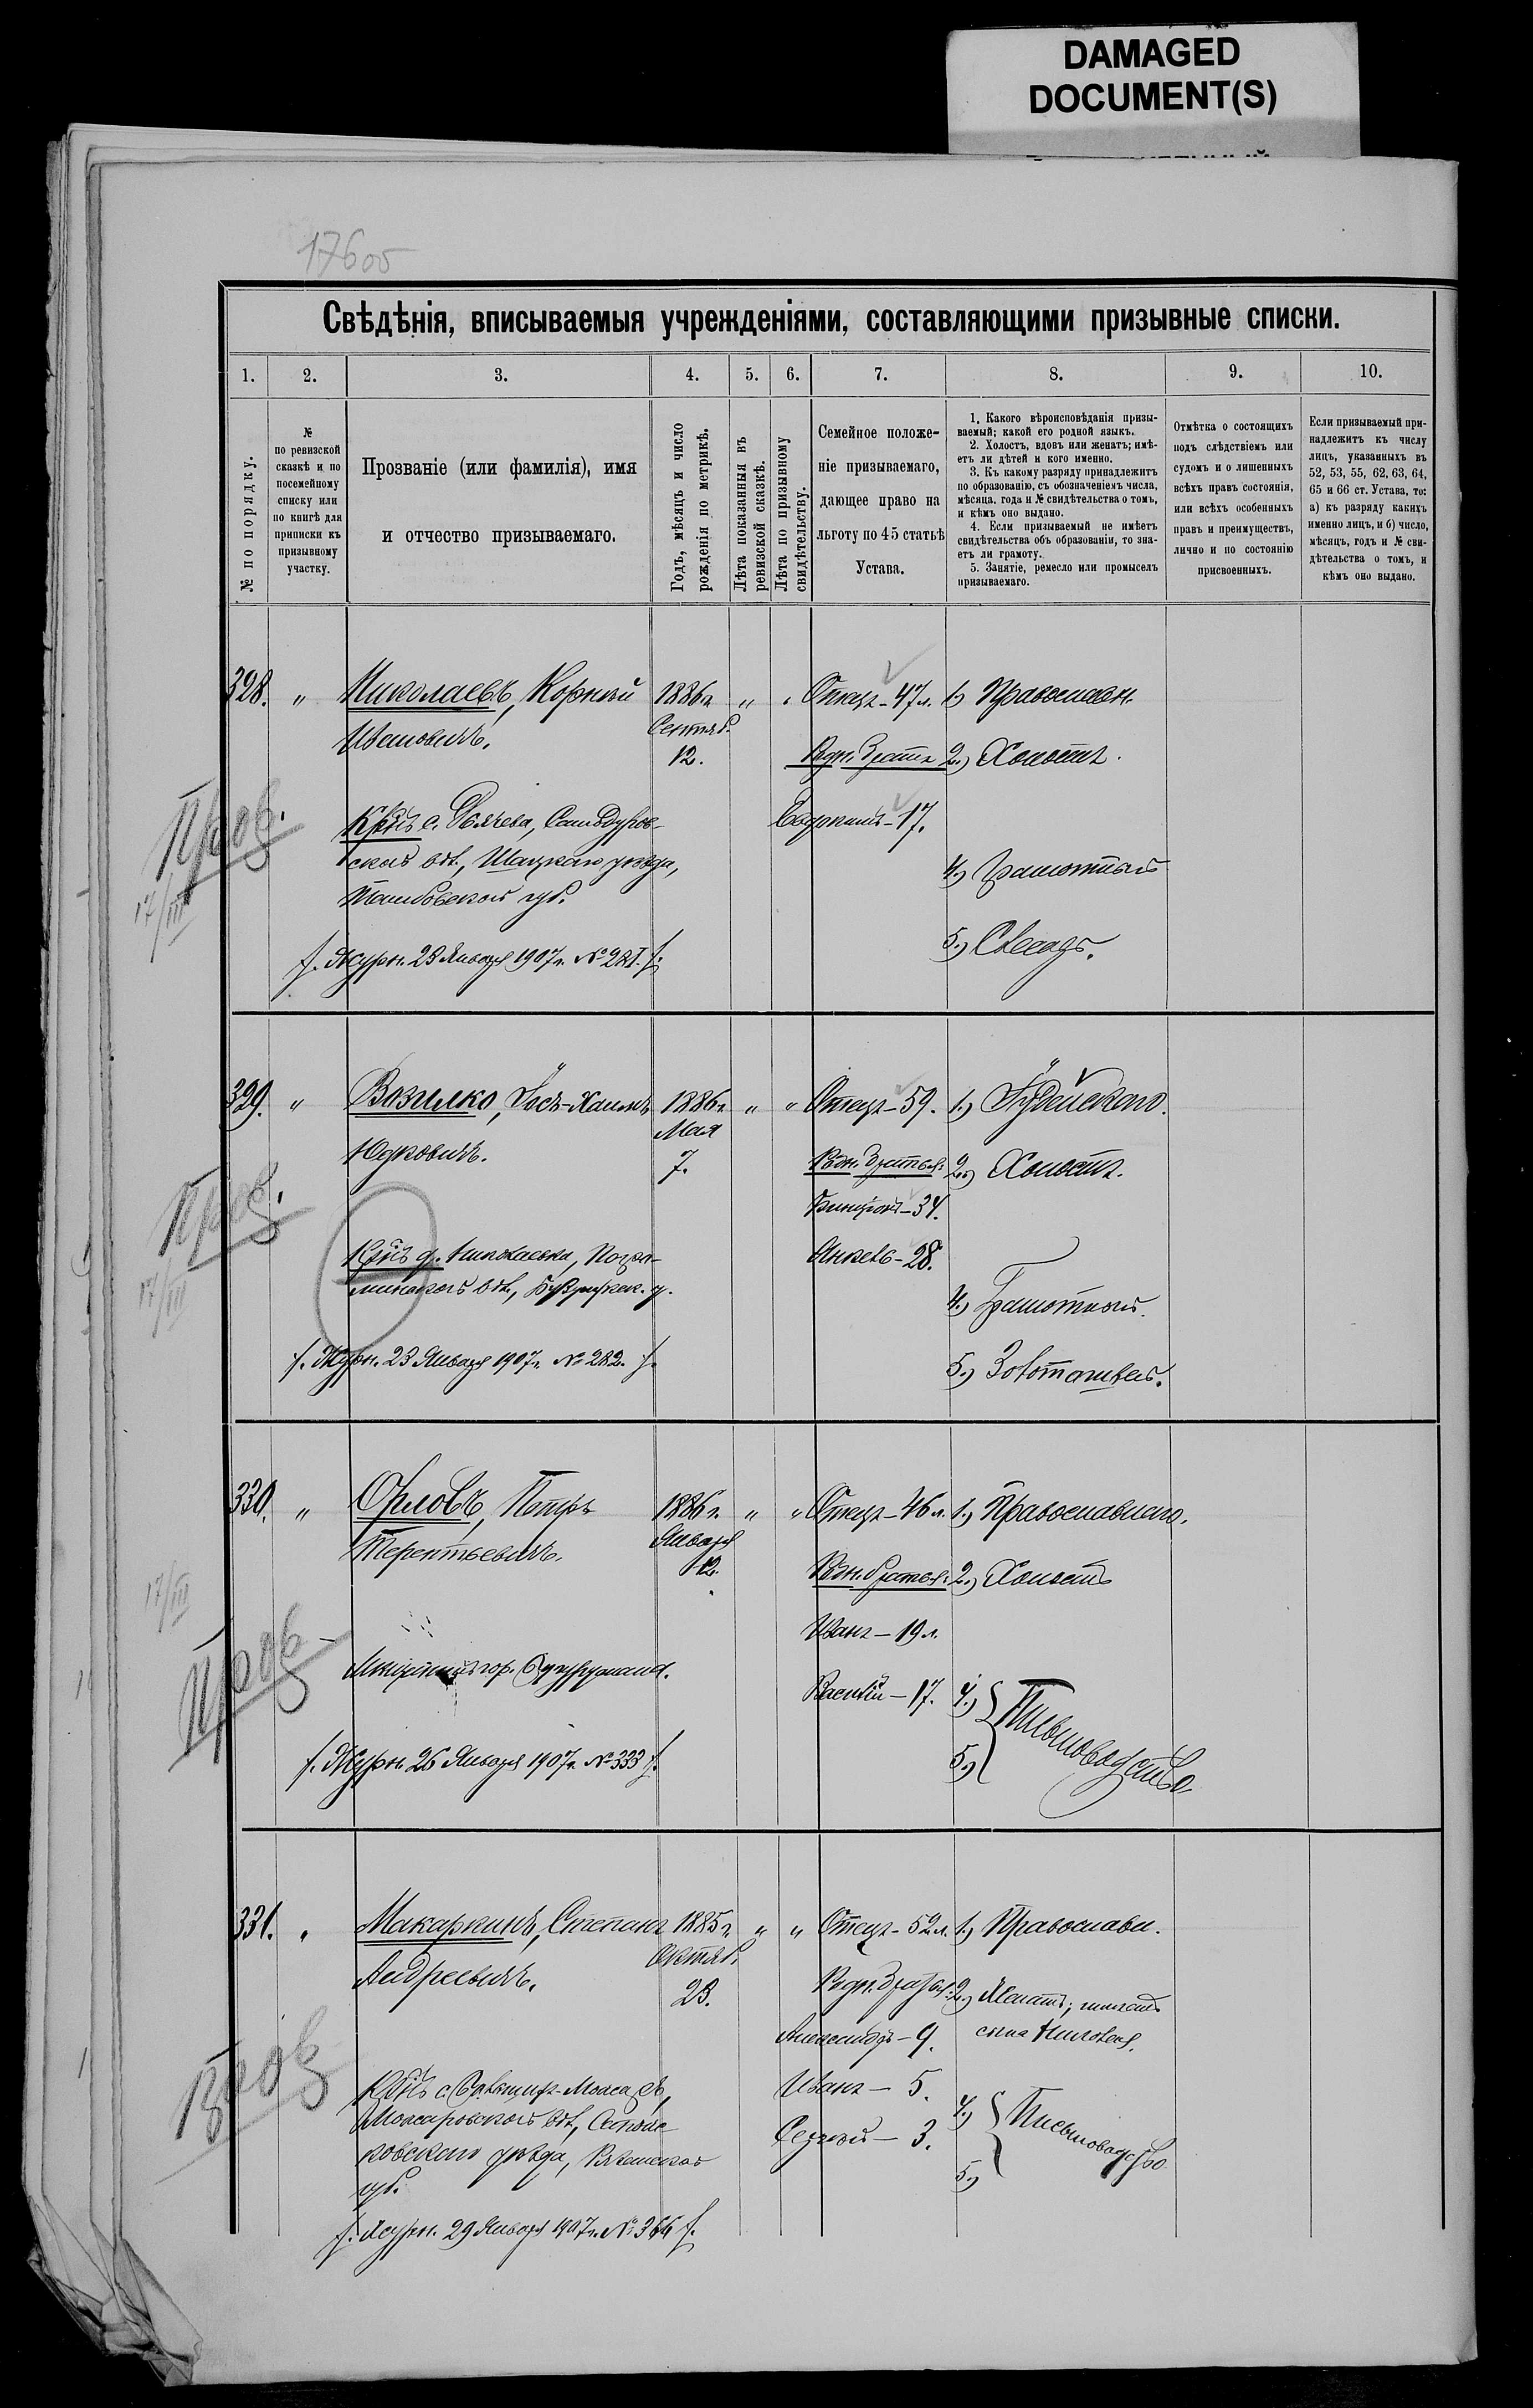 DAMAGED
DOCUMENT(S)
17605
Свѣдѣнія, вписываемыя учрежденіями, составляющими призывные списки.
1. 2. 3. 4. 5. 6. 7. 8. 9. 10.
№ по порядку.
№
по ревизской
сказкѣ и по
посемейному
списку или
по книгѣ для
приписки къ
призывному
участку.
Прозваніе (или фамилія), имя
и отчество призываемаго.
Годъ, мѣсяцъ и число
рожденія по метрикѣ.
Лѣта показанныя въ
ревизской сказкѣ.
Лѣта по призывному
свидѣтельству.
Семейное положе-
ніе призываемаго,
дающее право на
льготу по 45 статьѣ
Устава.
1. Какого вѣроисповѣданія призы-
ваемый; какой его родной языкъ.
2. Холостъ, вдовъ или женатъ; имѣ-
етъ ли дѣтей и кого именно.
3. Къ какому разряду принадлежитъ
по образованію, съ обозначеніемъ числа,
мѣсяца, года и № свидѣтельства о томъ,
и кѣмъ оно выдано.
4. Если призываемый не имѣетъ
свидѣтельства объ образованіи, то зна-
етъ ли грамоту.
5. Занятіе, ремесло или промыселъ
призываемаго.
Отмѣтка о состоящихъ
подъ слѣдствіемъ или
судомъ и о лишенныхъ
всѣхъ правъ состоянія,
или всѣхъ особенныхъ
правъ и преимуществъ,
лично и по состоянію
присвоенныхъ.
Если призываемый при-
надлежитъ къ числу
лицъ, указанныхъ въ
52, 53, 55, 62, 63, 64,
65 и 66 ст. Устава, то:
а) къ разряду какихъ
именно лицъ, и б) число,
мѣсяцъ, годъ и № сви-
дѣтельства о томъ, и
кѣмъ оно выдано.
328. " Николаевъ, Корнѣй
Ивановичъ.
1886 г.
Сентяб.
12.
" "
Отецъ - 47 л.
Родн. братъ
Евдокимъ - 17.
1.) Православн.
2.) Холостъ.
4.) Грамотный
5.) Слесарь.
Пров.
17/III
Крнъ с.
вол., Шацкаго уѣзда,
Тамбовской губ.
Журн. 23 Января 1907 г. № 281.
329. " Возилко, Іось-Хаимъ
Юдковичъ.
1886 г.
Мая
7.
" "
Отецъ - 59.
Родн. братья:
Бенціонъ - 34.
28.
1.) Іудейскаго.
2.) Холостъ.
4.) Грамотный.
5.)
Пров.
17/III
Крнъ д. Николаевка,
вол.,
Журн. 23 Января 1907 г. № 282.
330. " Орловъ, Петръ
Терентьевичъ.
1886 г.
Января
12.
" "
Отецъ - 46 л.
Родн. братья:
Иванъ - 19 л.
Василій - 17.
1.) Православнаго.
2.) Холостъ
4.)
5.) Письмоводство.
17/III
Пров
гор.
Журн. 26 Января 1907 г. № 333
331. " Макаркинъ, Степанъ
Андреевичъ.
1885 г.
Октяб.
23.
" "
Отецъ - 52 л.
Родн. братья:
Александръ - 9.
Иванъ - 5.
Сергѣй - 3.
1.) Православн.
2.) Женатъ; имѣетъ
сына Николая.
4.)
5.) Письмоводство.
Пров
Крнъ с.
Можаровской вол., Сапож-
ковскаго уѣзда, Рязанской
губ.
Журн. 29 Января 1907 г. № 366